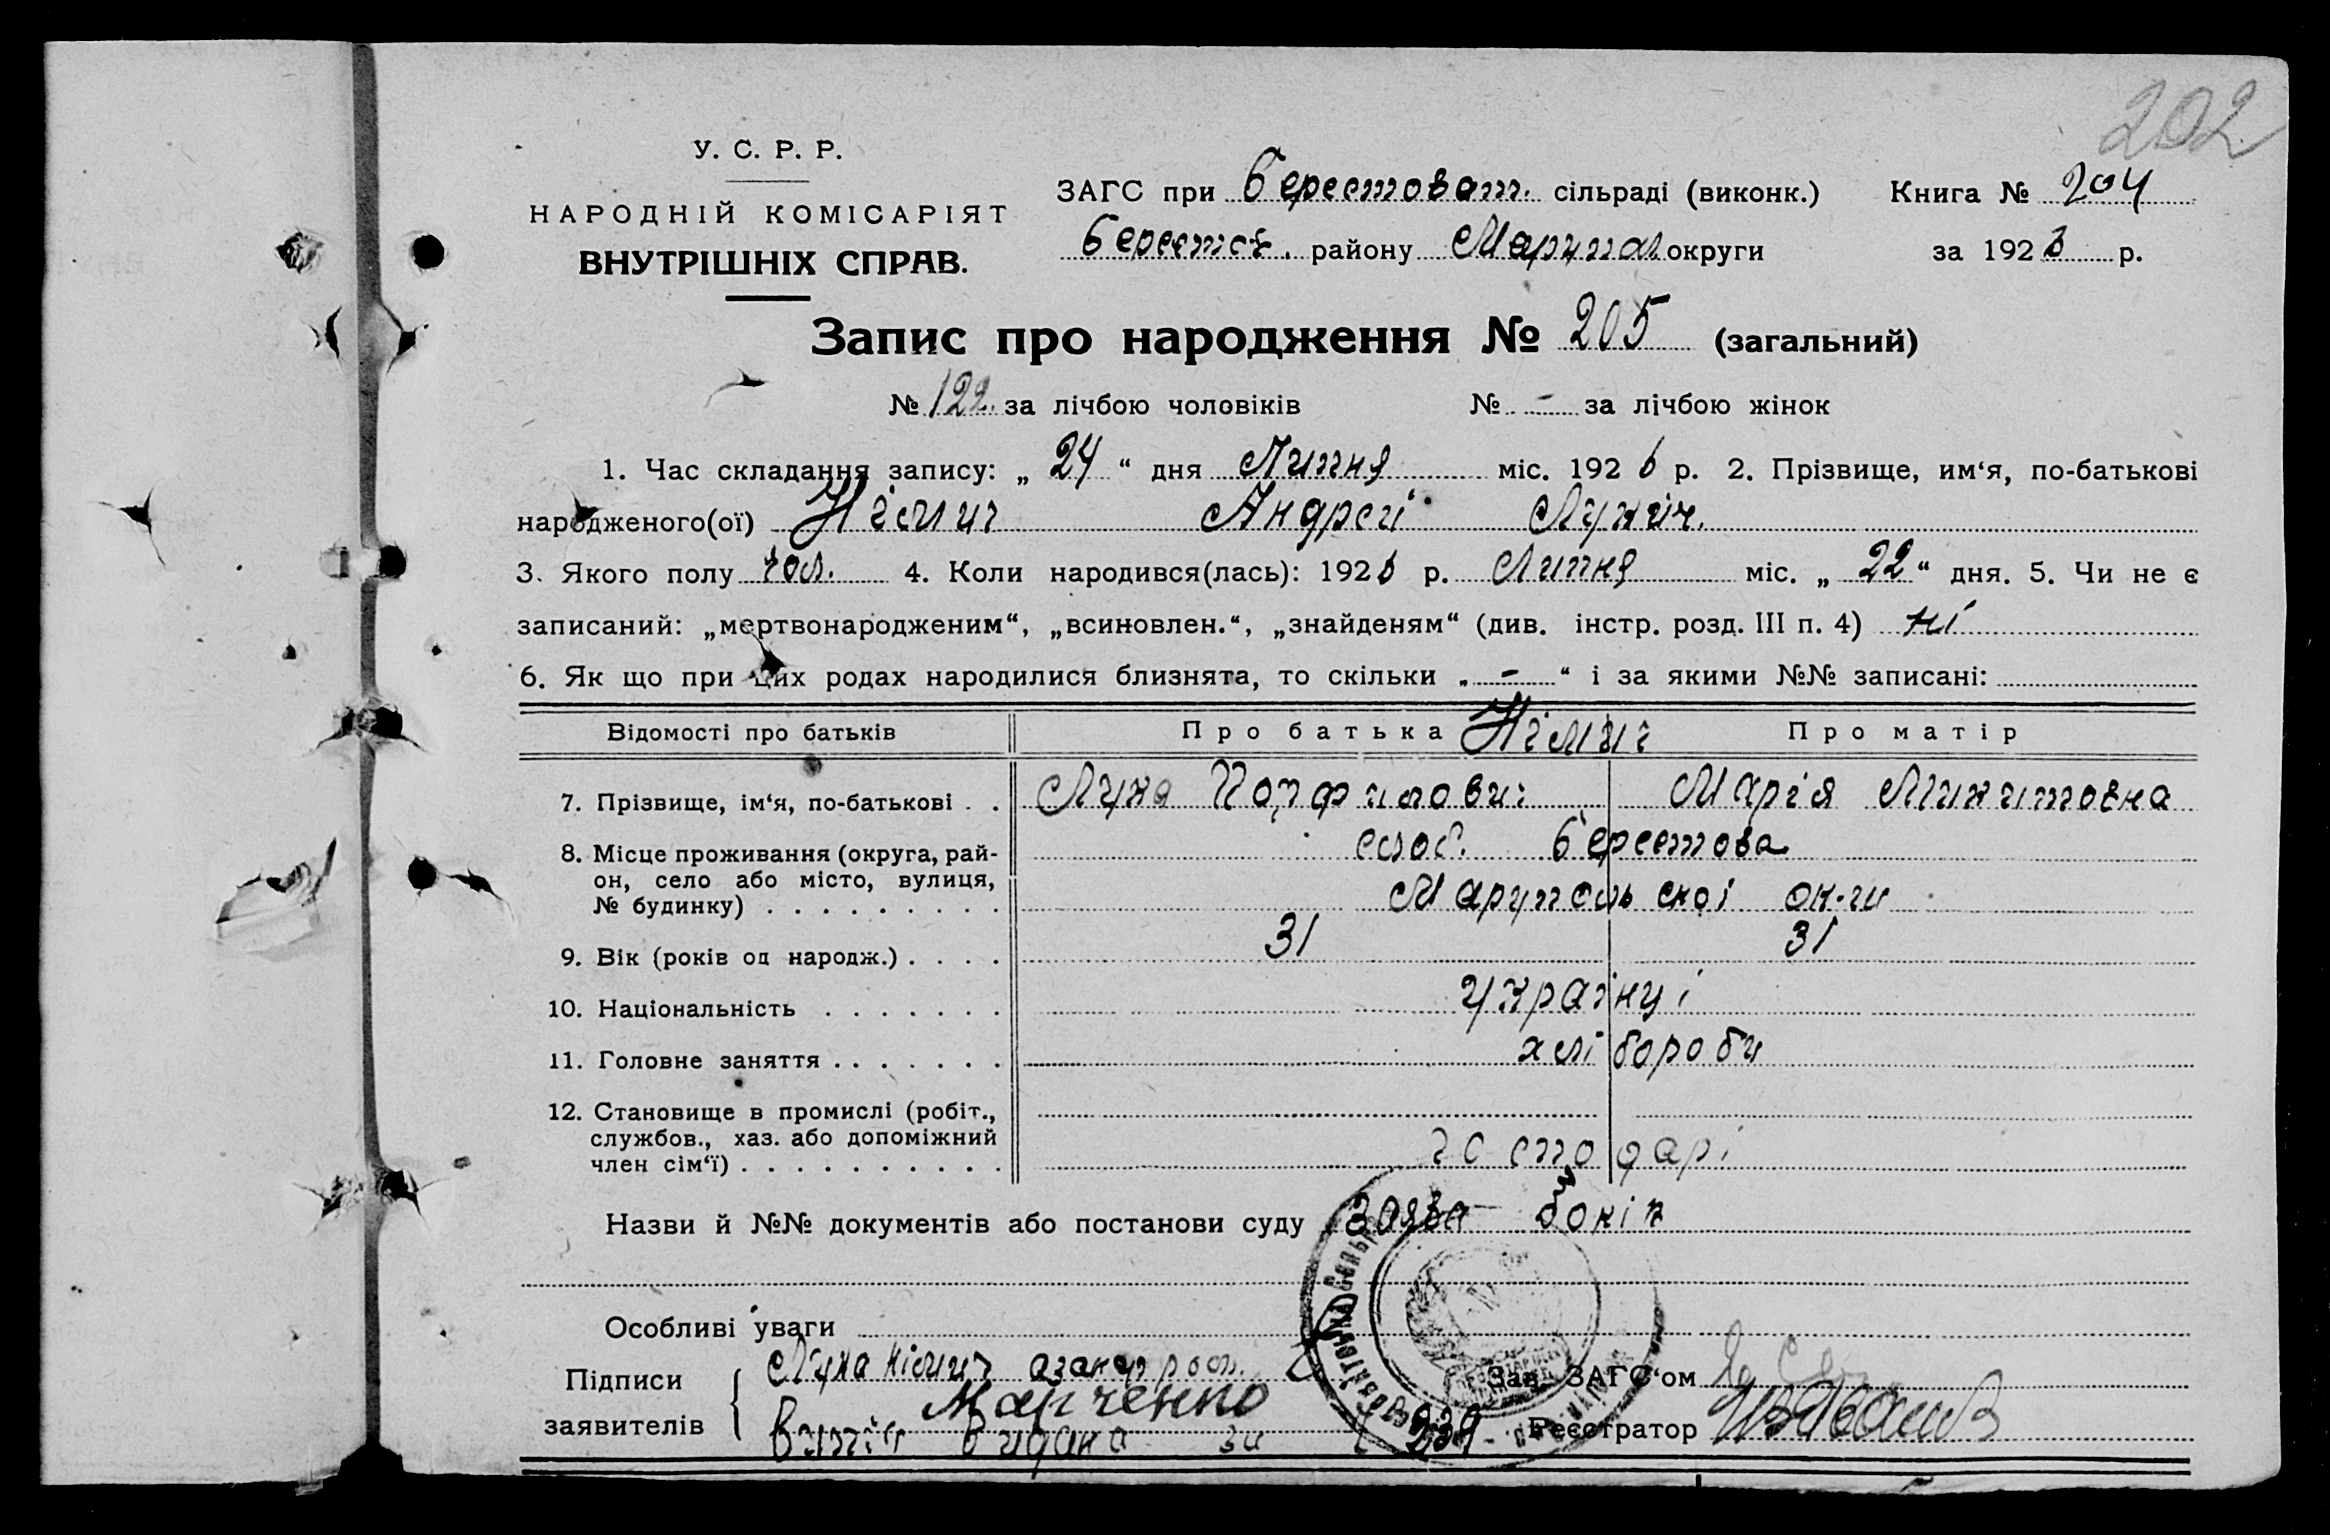 202
У. С. Р. Р.
НАРОДНІЙ КОМІСАРІЯТ
ВНУТРІШНІХ СПРАВ.
ЗАГС при Берестоват. сільраді (виконк.) Книга № 204
Берестов. району Маріупол. округи за 1926 р.
Запис про народження № 205 (загальний)
№ 122. за лічбою чоловіків № - за лічбою жінок
1. Час складання запису: „ 24 “ дня Липня міс. 1926 р. 2. Прізвище, им‘я, по-батькові
народженого(ої) Німич Андрей Лукич.
3. Якого полу чол. 4. Коли народився(лась): 1926 р. Липня міс. „ 22 “ дня. 5. Чи не є
записаний: „мертвонародженим“, „всиновлен.“, „знайденям“ (див. інстр. розд. III п. 4) ні
6. Як що при цих родах народилися близнята, то скільки „ - “ і за якими №№ записані:
Відомості про батьків Про батька Німич Про матір
7. Прізвище, ім‘я, по-батькові . . Лука Порфилович Марія Микитовна
8. Місце проживання (округа, рай- слоб. Берестова
он, село або місто, вулиця,
№ будинку) . . . . . . . . . Маріупольскої ок-ги
9. Вік (років од народж.) . . . . 31 31
10. Національність . . . . . . . українці
11. Головне заняття . . . . . . . хлібороби
12. Становище в промислі (робіт.,
службов., хаз. або допоміжний
член сім‘ї) . . . . . . . . . . господарі
Назви й №№ документів або постанови суду Заява
Особливі уваги
Підписи Лука Німич Зав. ЗАГС‘ом
Марченко
заявителів Витяг видана за 239 Реєстратор